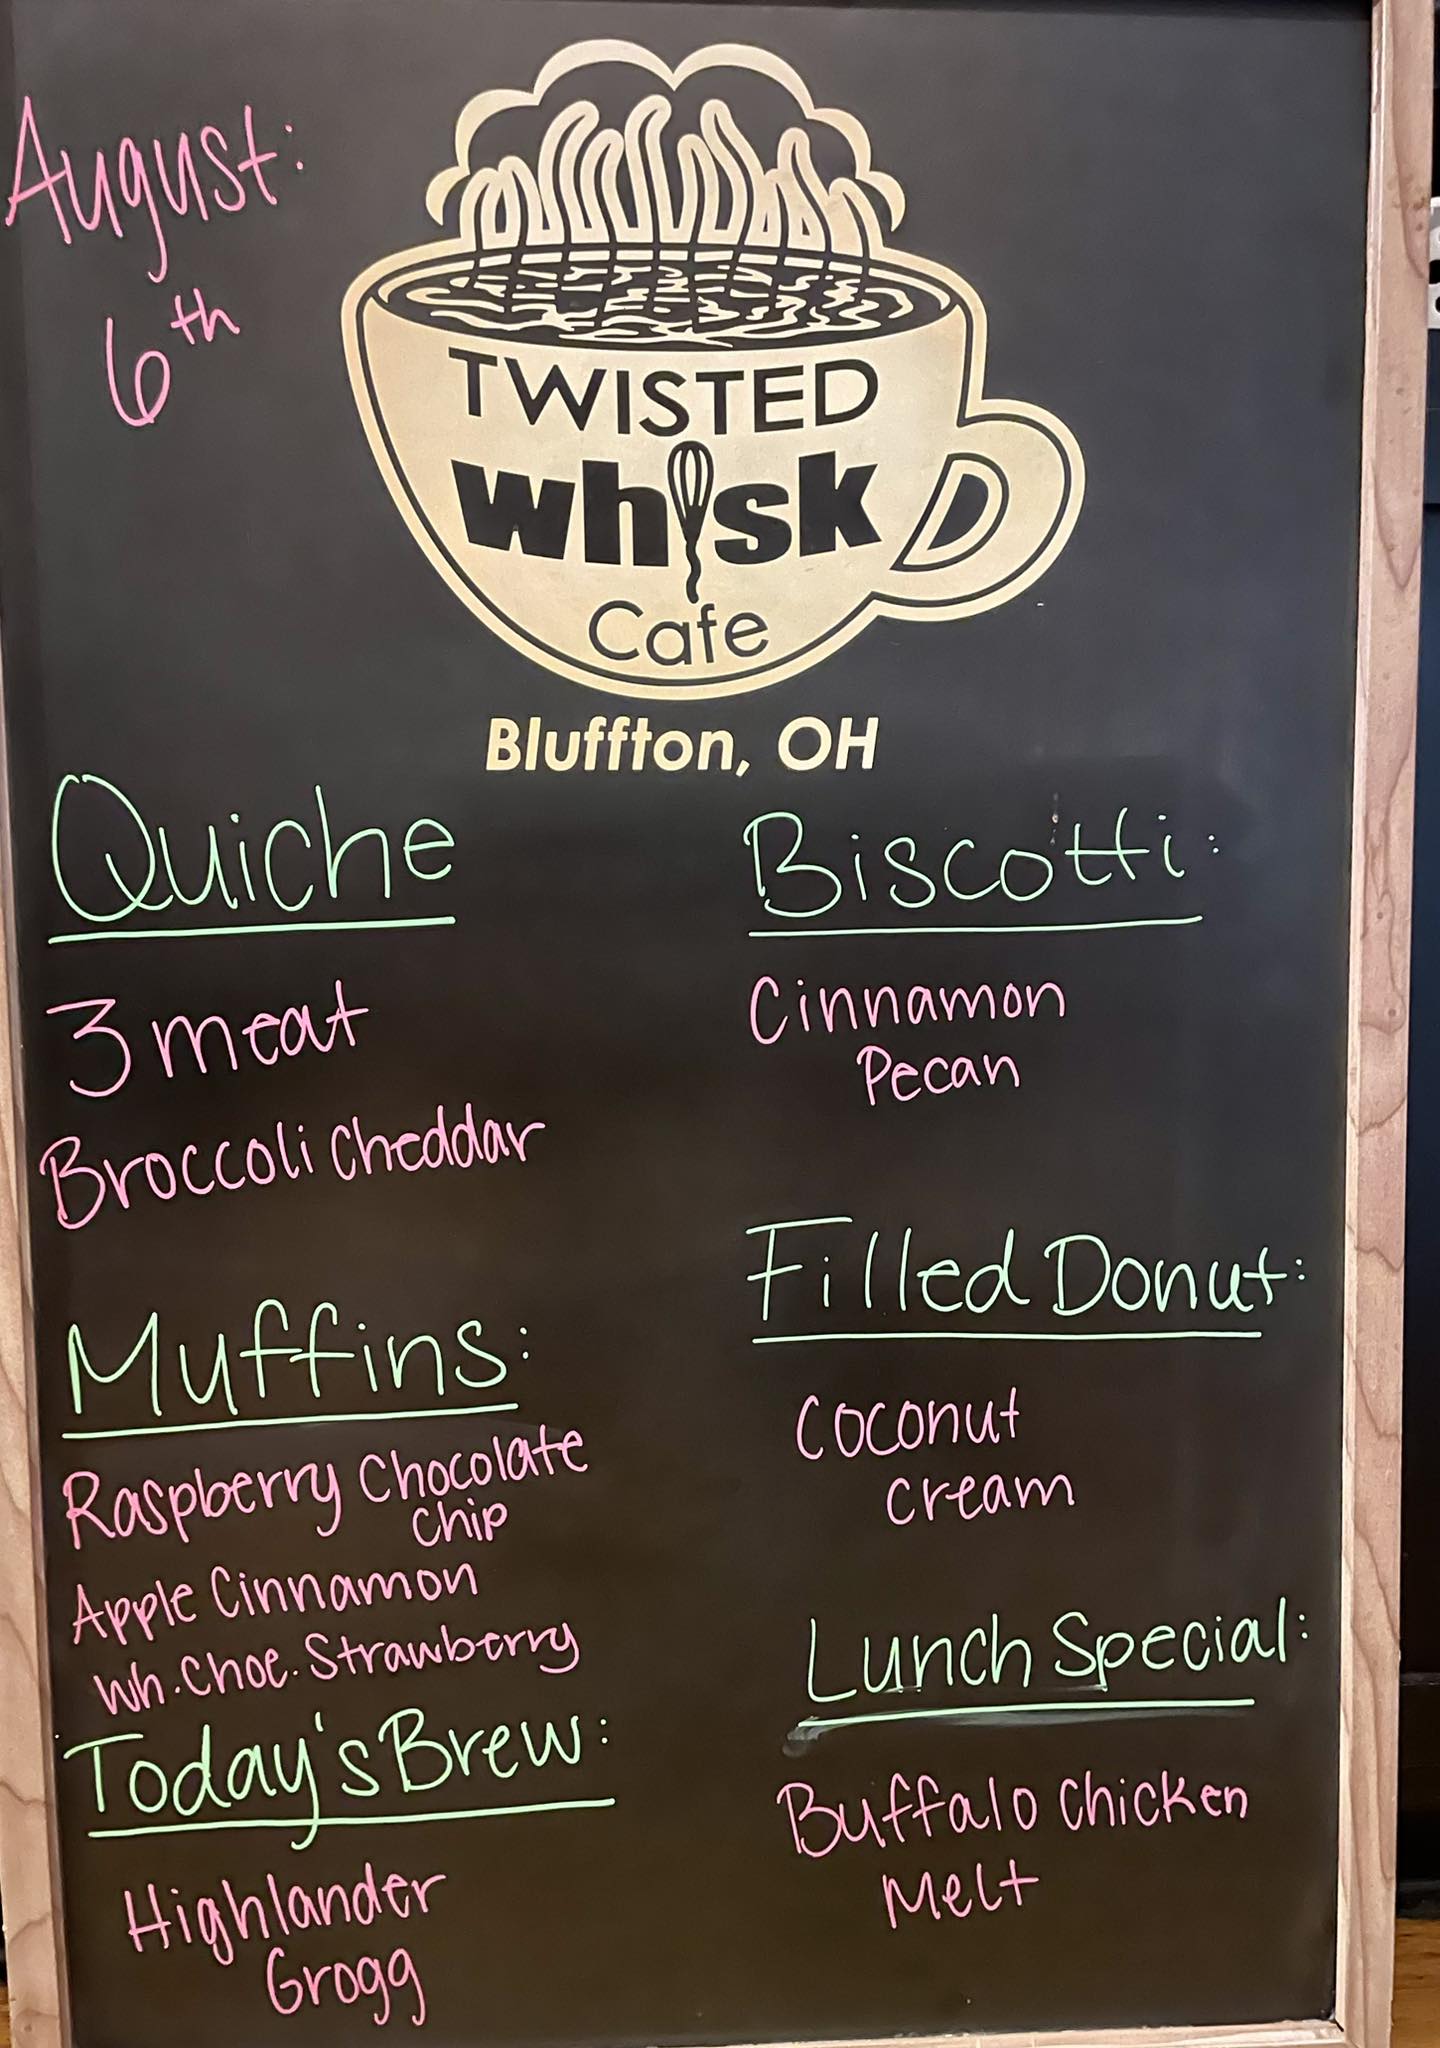 August:
6th
TWISTED
whisk
Cafe
Bluffton, OH
Quiche
3 meat
Broccoli Cheddar
Muffins:
Raspberry Chocolate
Chip
Apple Cinnamon
Wh. Choc. Strawberry
Today's Brew:
Highlander
Grogg
Biscotti:
Cinnamon
Pecan
Filled Donut:
Coconut
Cream
Lunch Special:
Buffalo Chicken
Melt